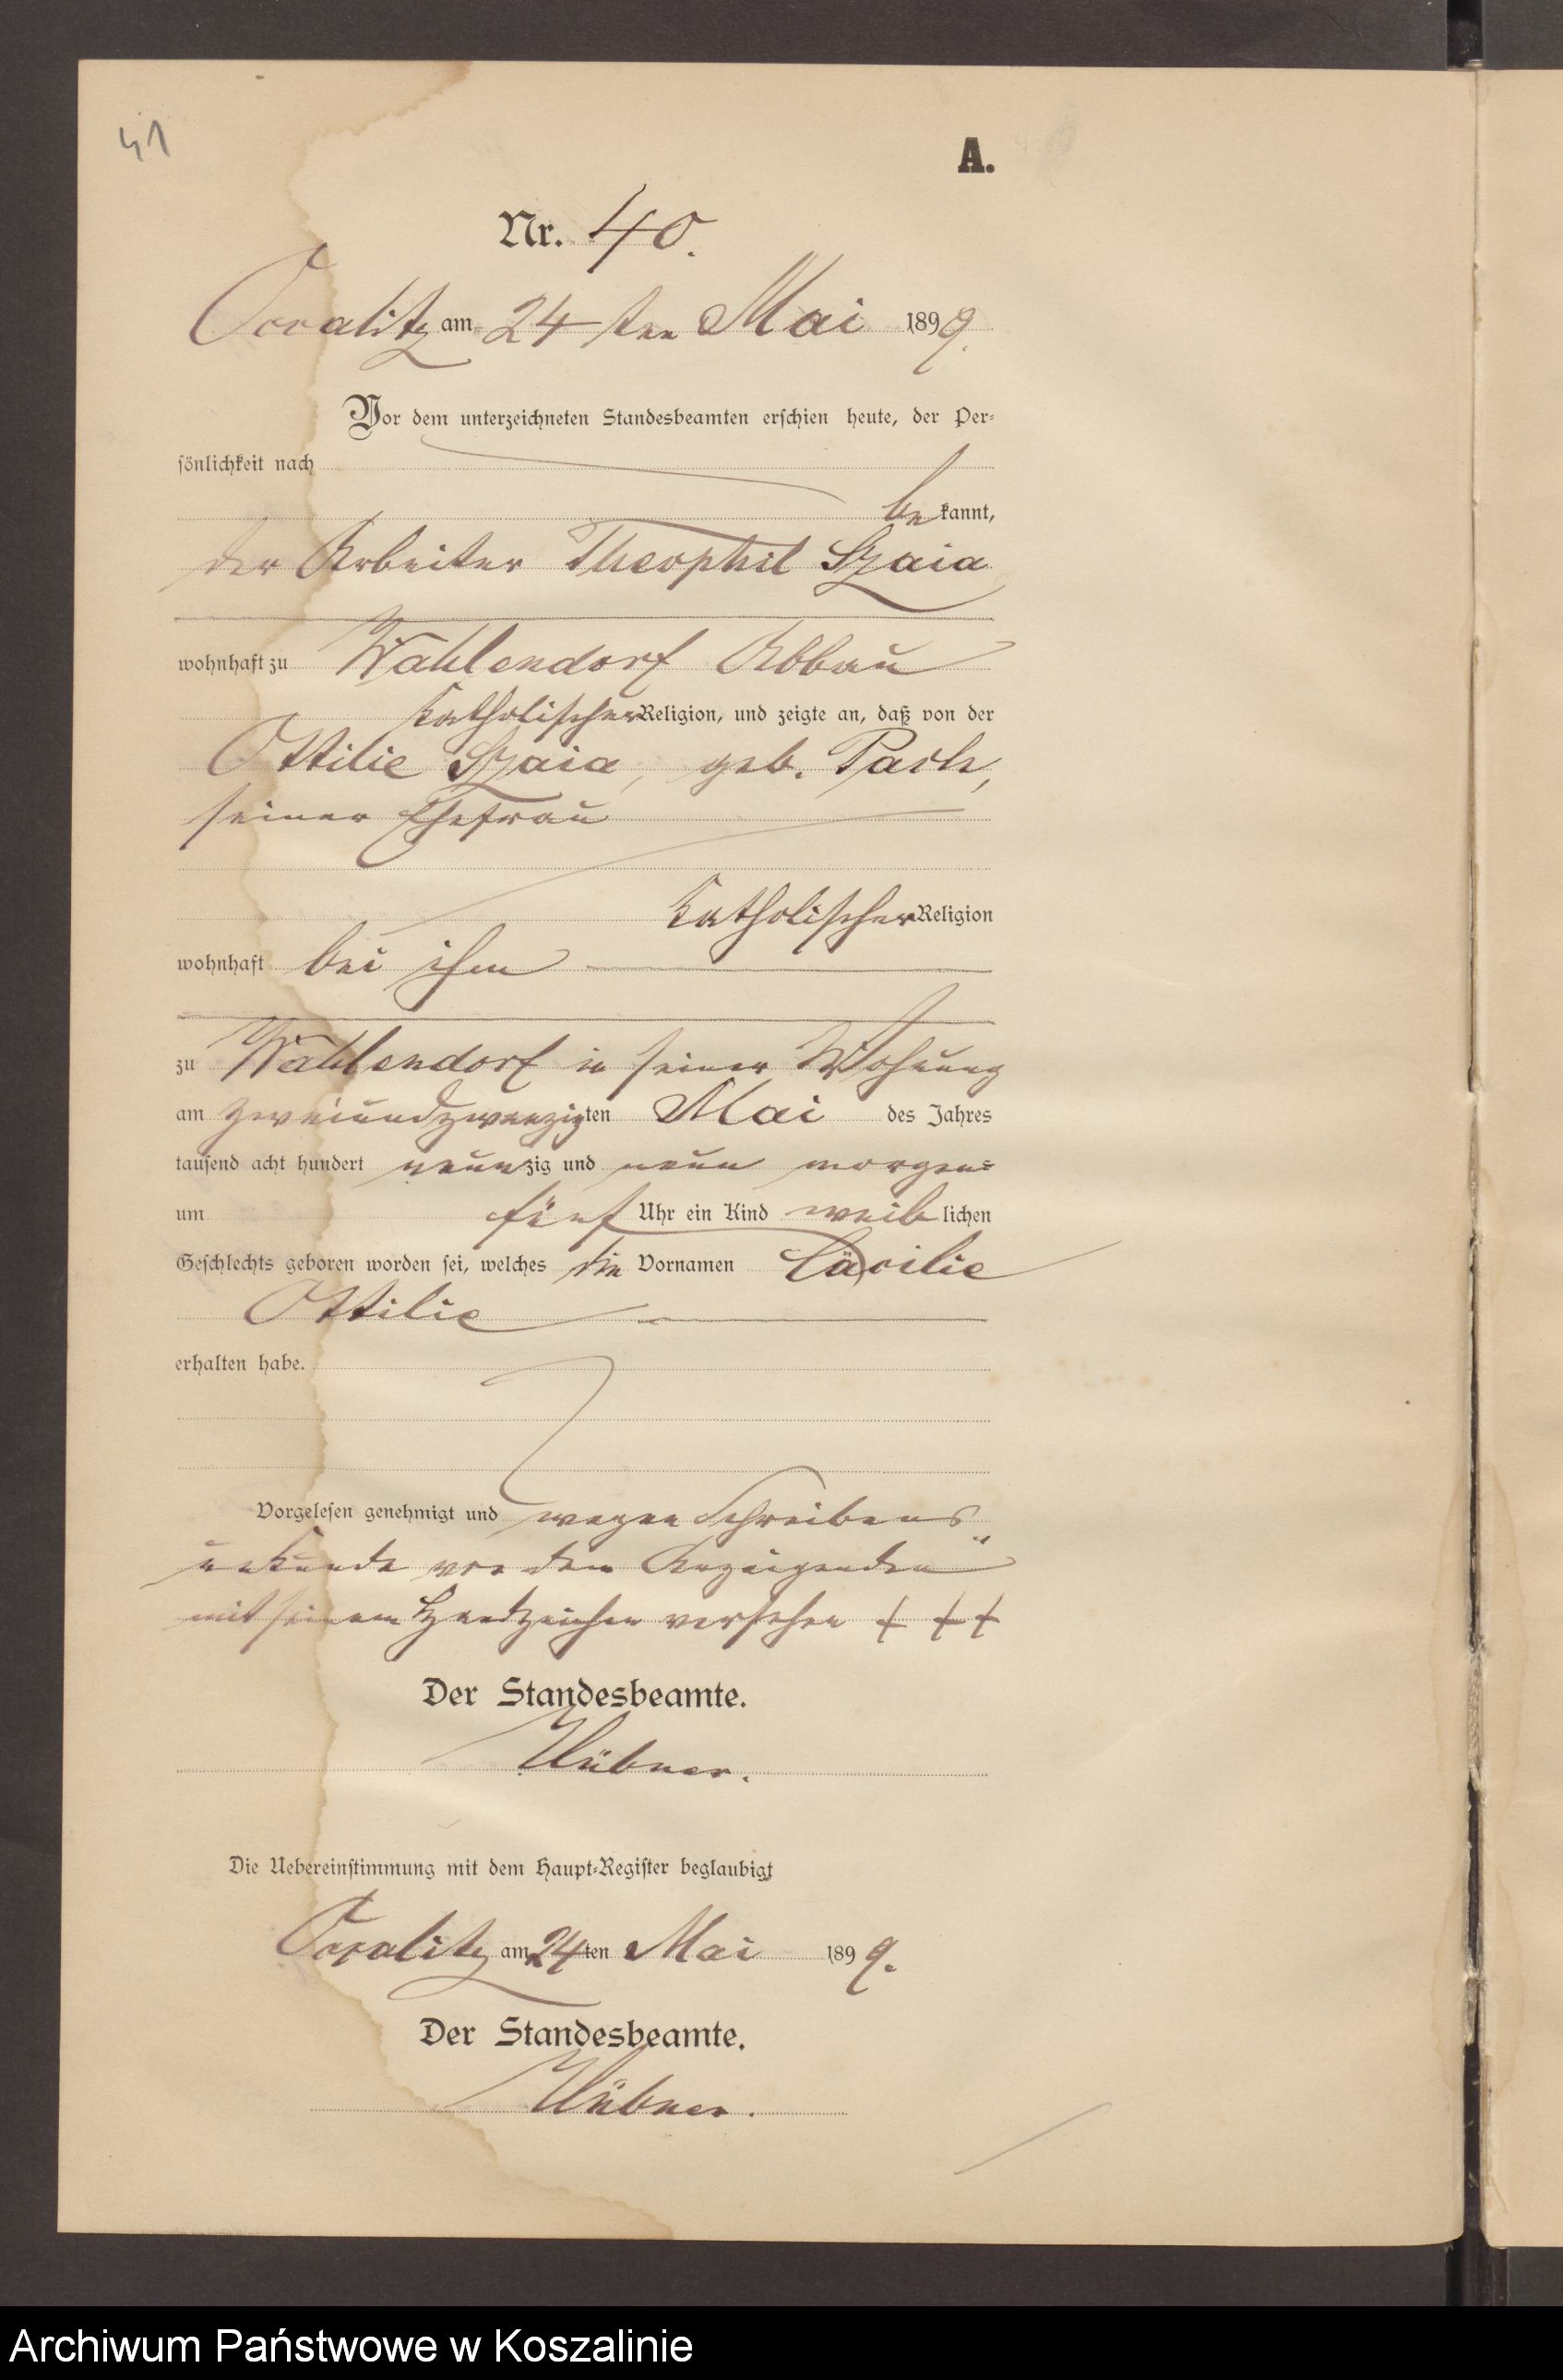 41
A.
Nr. 40.
am 24ten Mai 1899.
Vor dem unterzeichneten Standesbeamten erschien heute, der Per-
sönlichkeit nach
bekannt,
der Arbeiter Theophil Szaia
wohnhaft zu Wahlendorf Abbau
katholischer Religion, und zeigte an, daß von der
Ottilie Szaia, geb.
seiner Ehefrau
katholischer Religion
wohnhaft bei ihm
zu Wahlendorf in seiner Wohnung
am zweiundzwanzigten Mai des Jahres
tausend acht hundert neunzig und neun morgens
um fünf Uhr ein Kind weiblichen
Geschlechts geboren worden sei, welches die Vornamen Cäcilie
Ottilie
erhalten habe.
Vorgelesen genehmigt und wegen Schreibens
unkunde von dem Anzeigenden
mit seinem Handzeichen versehen + + +
Der Standesbeamte.
Hübner.
Die Uebereinstimmung mit dem Haupt-Register beglaubigt
am 24ten Mai 1899.
Der Standesbeamte.
Hübner.
Archiwum Państwowe w Koszalinie